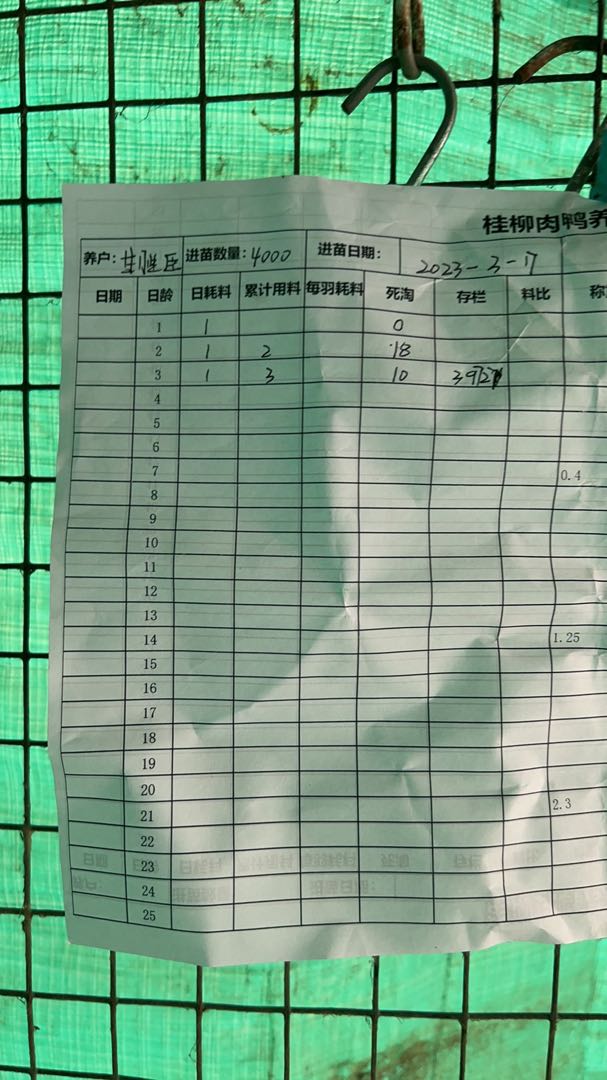 桂柳肉鸭养
养户: 进苗数量: 4000 进苗日期: 2023-3-17
日期 日龄 日耗料 累计用料 每羽耗料 死淘 存栏 料比 称
1 1 0
2 1 2 18
3 1 3 10
4
5
6
7 0.4
8
9
10
11
12
13
14 1.25
15
16
17
18
19
20
21 2.3
22
23
24
25